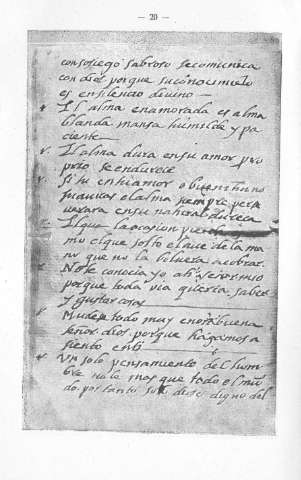 — 20 —
con sosiego sabroso se comunica
con dios porque su conocimiento
es en silencio divino —
El alma enamorada es alma
blanda mansa humilde y pa
ciente —
El alma dura en su amor pro
prio se endurece
Si tu en tu amor o buen
suavizas el alma siempre per
en su natural dureza
El que la ocasion pierde
mo el que solto el aue de la ma
no que no la boluera a cobrar
No te conocia yo a ti señor mio
porque toda via queria saber
y gustar cosas
Mudese todo muy enorabuena
señor dios porque hagamos a
siento en ti
Un solo pensamiento del hom
bre vale mas que todo el mũ
do por tanto solo dios es digno del